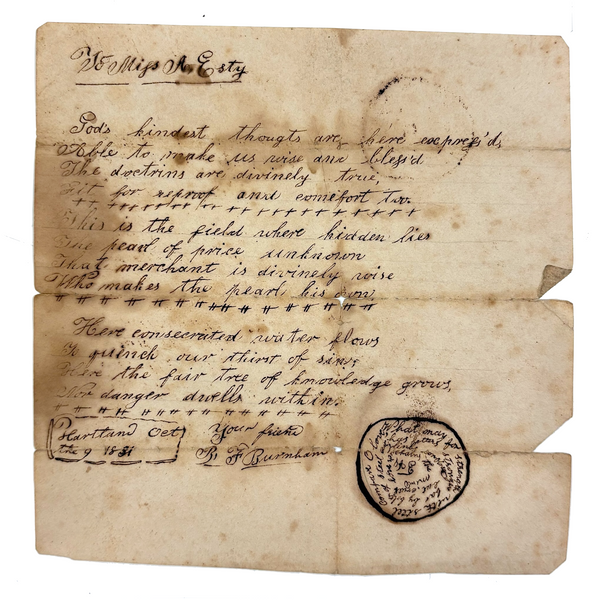 To Miss A. Esty
God's kindest thougts are here express'd,
Able to make us wise and bless'd
The doctrins are divinely true,
Fit for reproof and comefort too.
This is the field where hidden lies
The pearl of price unknown
That merchant is divinely wise
Who makes the pearl his own
Here consecrated water flows
To quench our thirst of sin,
Here the fair tree of knowledge grows,
Nor danger dwells within.
Hartland Oct
the 9 1831
Your friend
B. F Burnham
What may for strength with steel